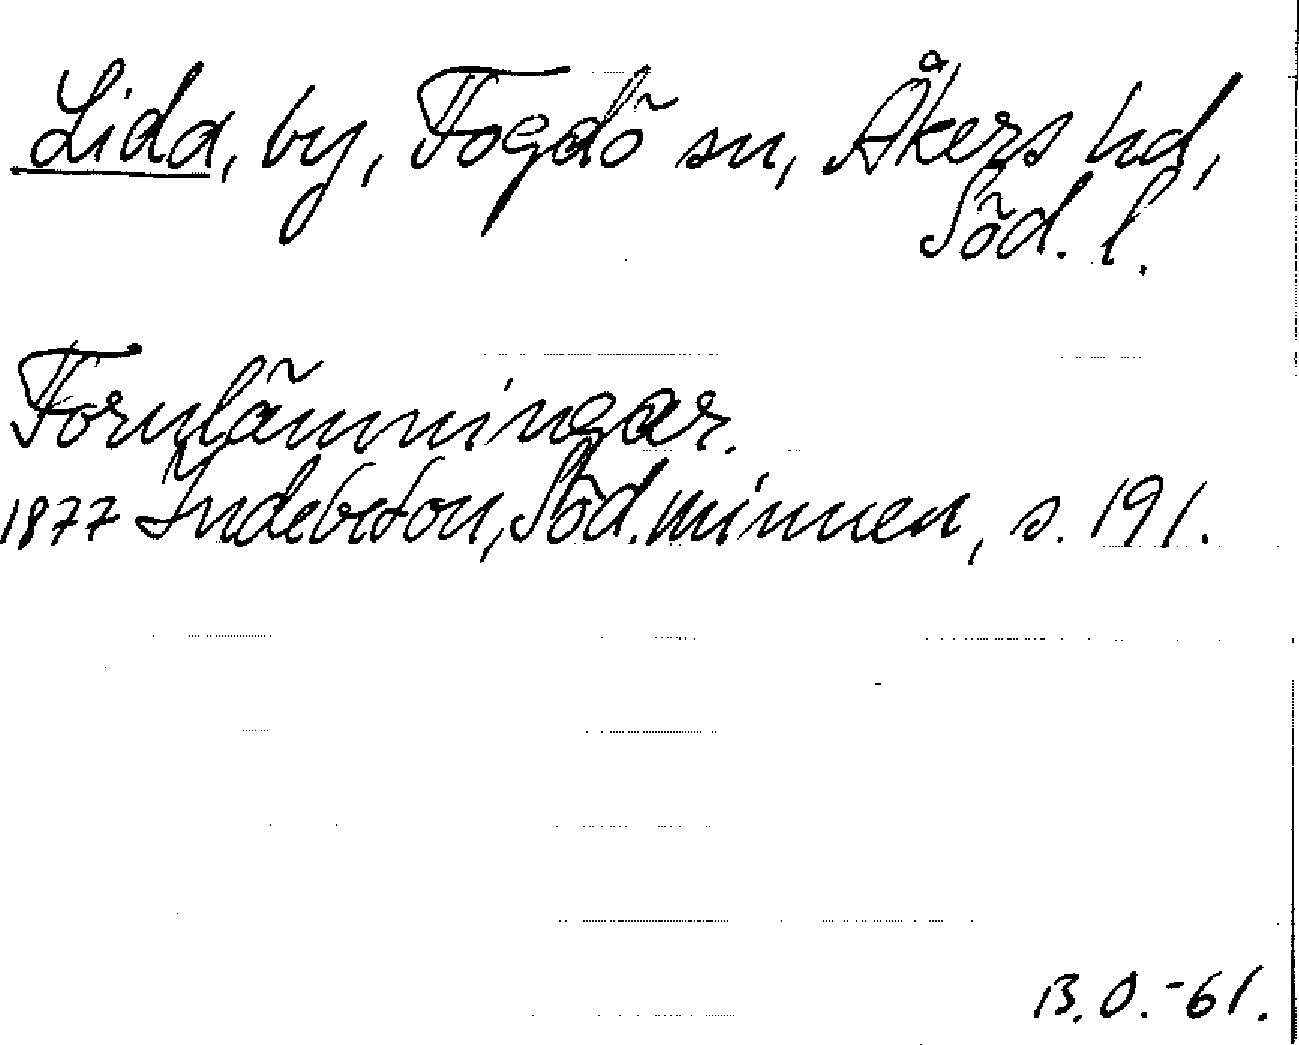 Lida, by, Fogdö sn, Åkers hd,
Söd. l.
Fornlämningar.
1877 Indebetou, Söd. minnen, s. 191.
B.O. -61.